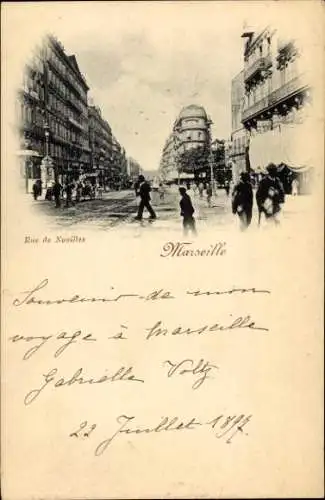 Rue de Noailles
Marseille
Souvenir de mon
voyage à Marseille
Gabrielle Voltz
22 Juillet 1897